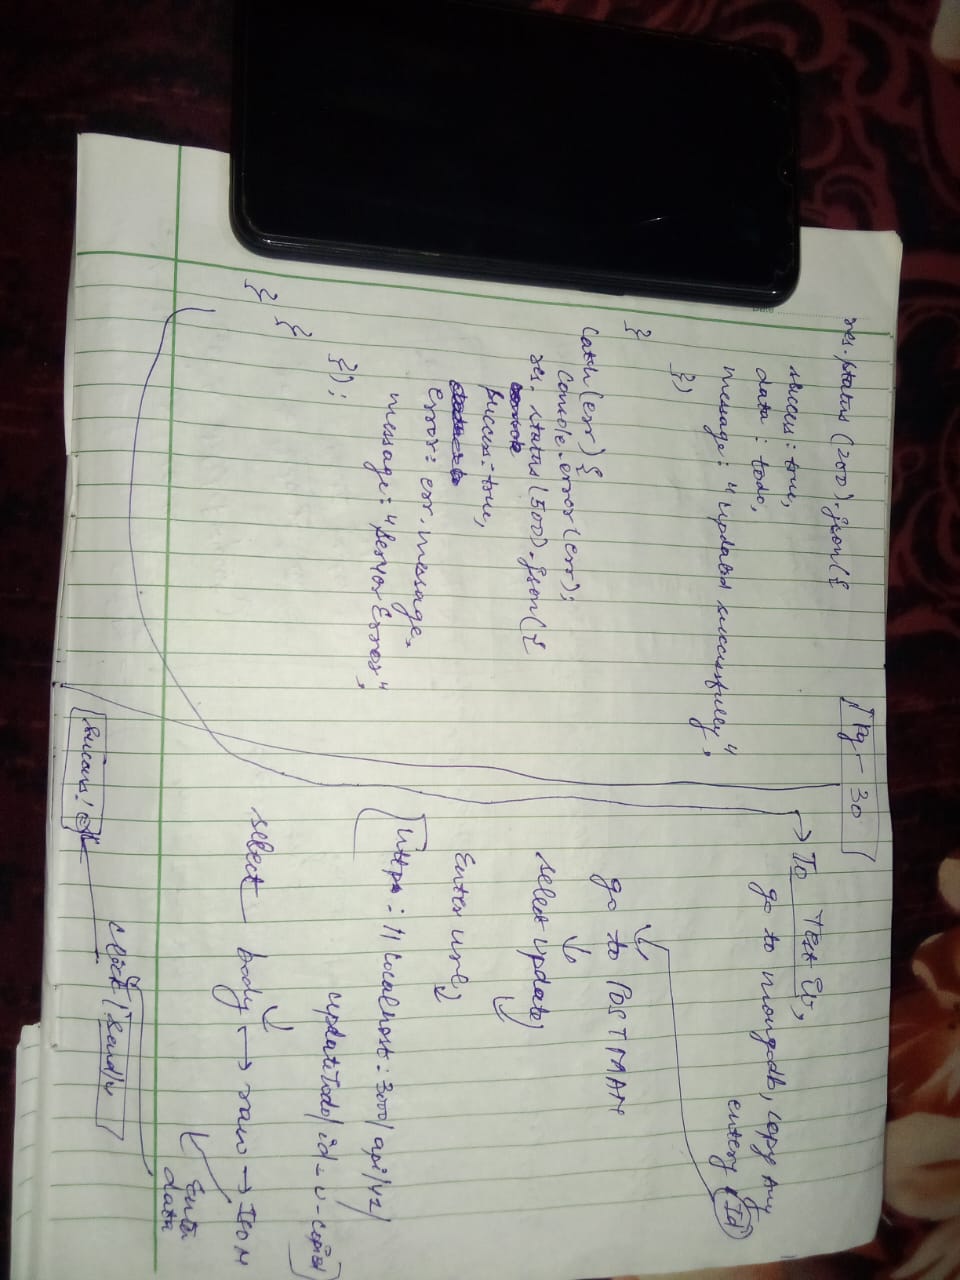 Pg - 30
res.status(200).json({
success: true,
data: todo,
message: "updated successfully",
})
}
catch(err) {
console.error(err);
res.status(500).json({
success: true,
error: err.message,
message: "Server Error",
});
}
}
→ To Test It,
go to mongodb, copy any
entery (Id)
↓
go to POSTMAN
↓
select update
↓
Enter url
↓
http : // localhost : 3000/ api/v1/
updateTodo/
↓
select body → raw → JSON
↓
Enter
data
click "send"
success!